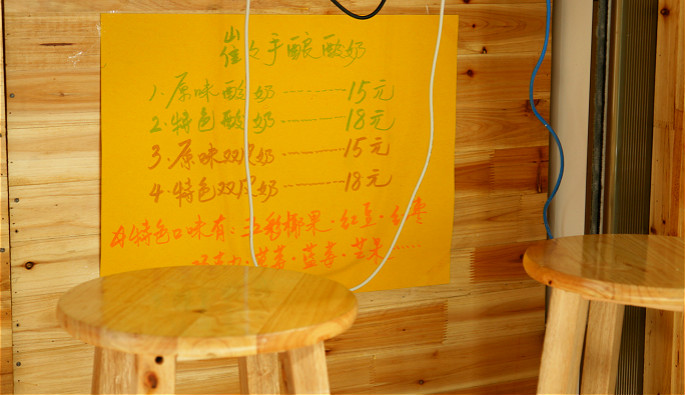 崔手酿酸奶
1.原味酸奶------15元
2.特色酸奶------18元
3.原味双皮奶------15元
4.特色双皮奶------18元
特色口味有:五彩椰果·红豆·红枣
巧克力·草莓·蓝莓·芒果......